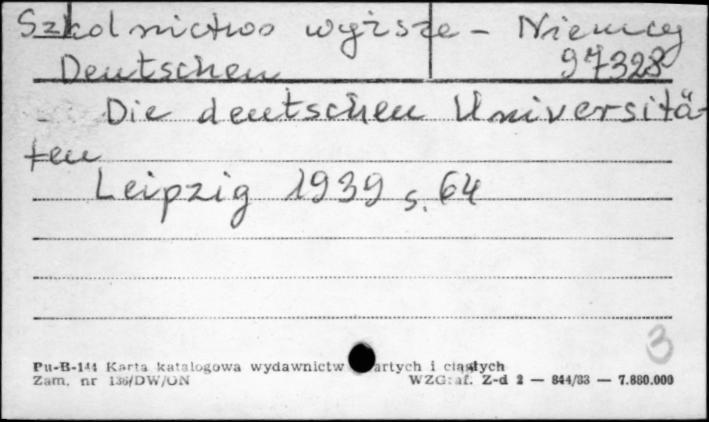 Szkolnictwo wyższe - Niemcy
97328
Deutschen
Die deutschen Universitä-
ten
Leipzig 1939 s. 64
3
Pu-B-144 Karta katalogowa wydawnictw artych i ciągłych
Zam. nr 136/DW/ON WZGraf. Z-d 2 — 844/83 — 7.880.000